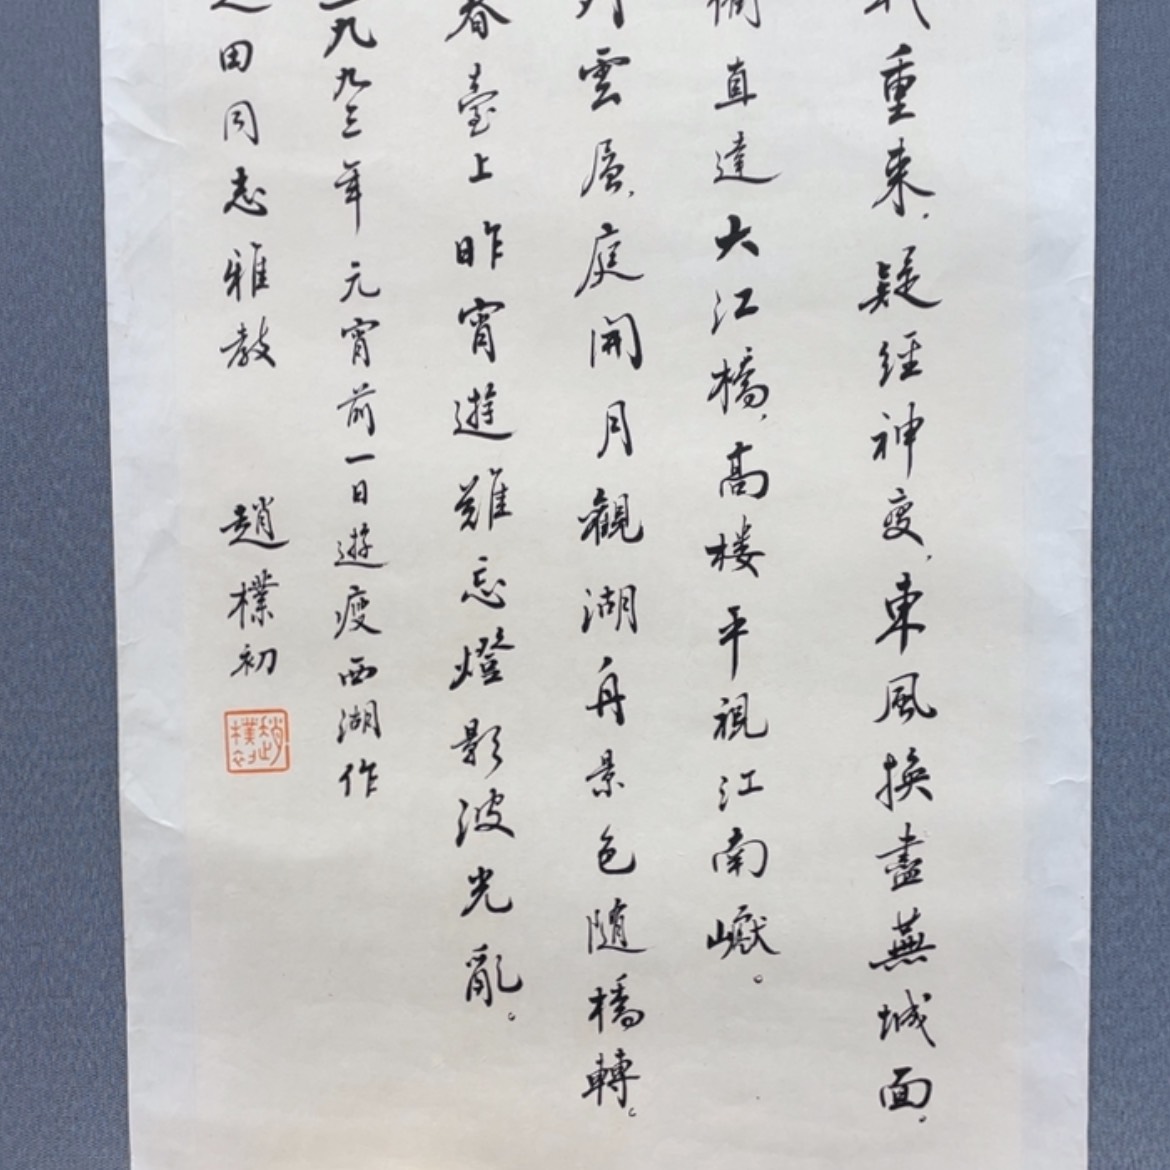 重来，疑经神变，東風换盡蕪城面，
直達大江橋，高楼平視江南巘。
雲㕓，庭開月觀湖舟景色随橋轉。
春臺上昨宵遊難忘燈影波光亂。
九九三年元宵前一日遊瘦西湖作
田同志雅教 趙樸初
趙樸初